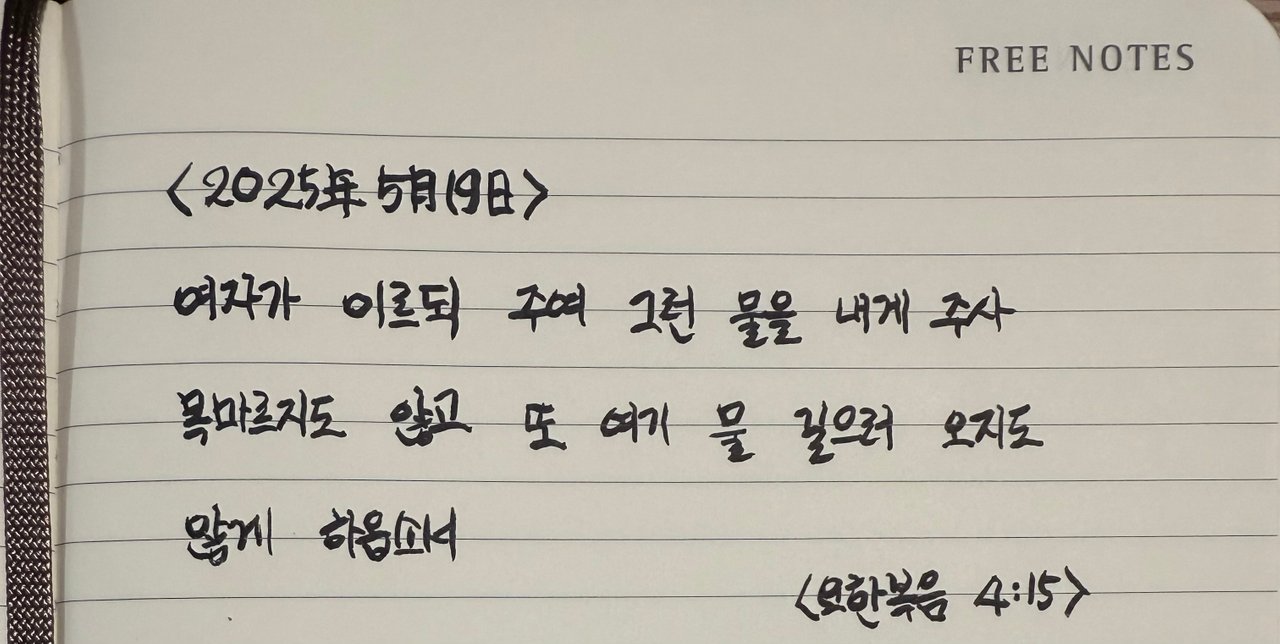 FREE NOTES
<2025年 5月19日>
여자가 이르되 주여 그런 물을 내게 주사
목마르지도 않고 또 여기 물 길으러 오지도
않게 하옵소서
<요한복음 4:15>